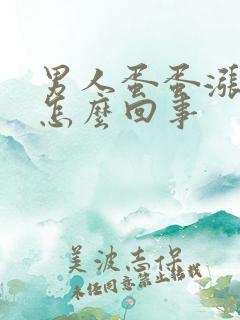 男人蛋蛋涨
怎麼回事
美波志保
未经同意禁止转载